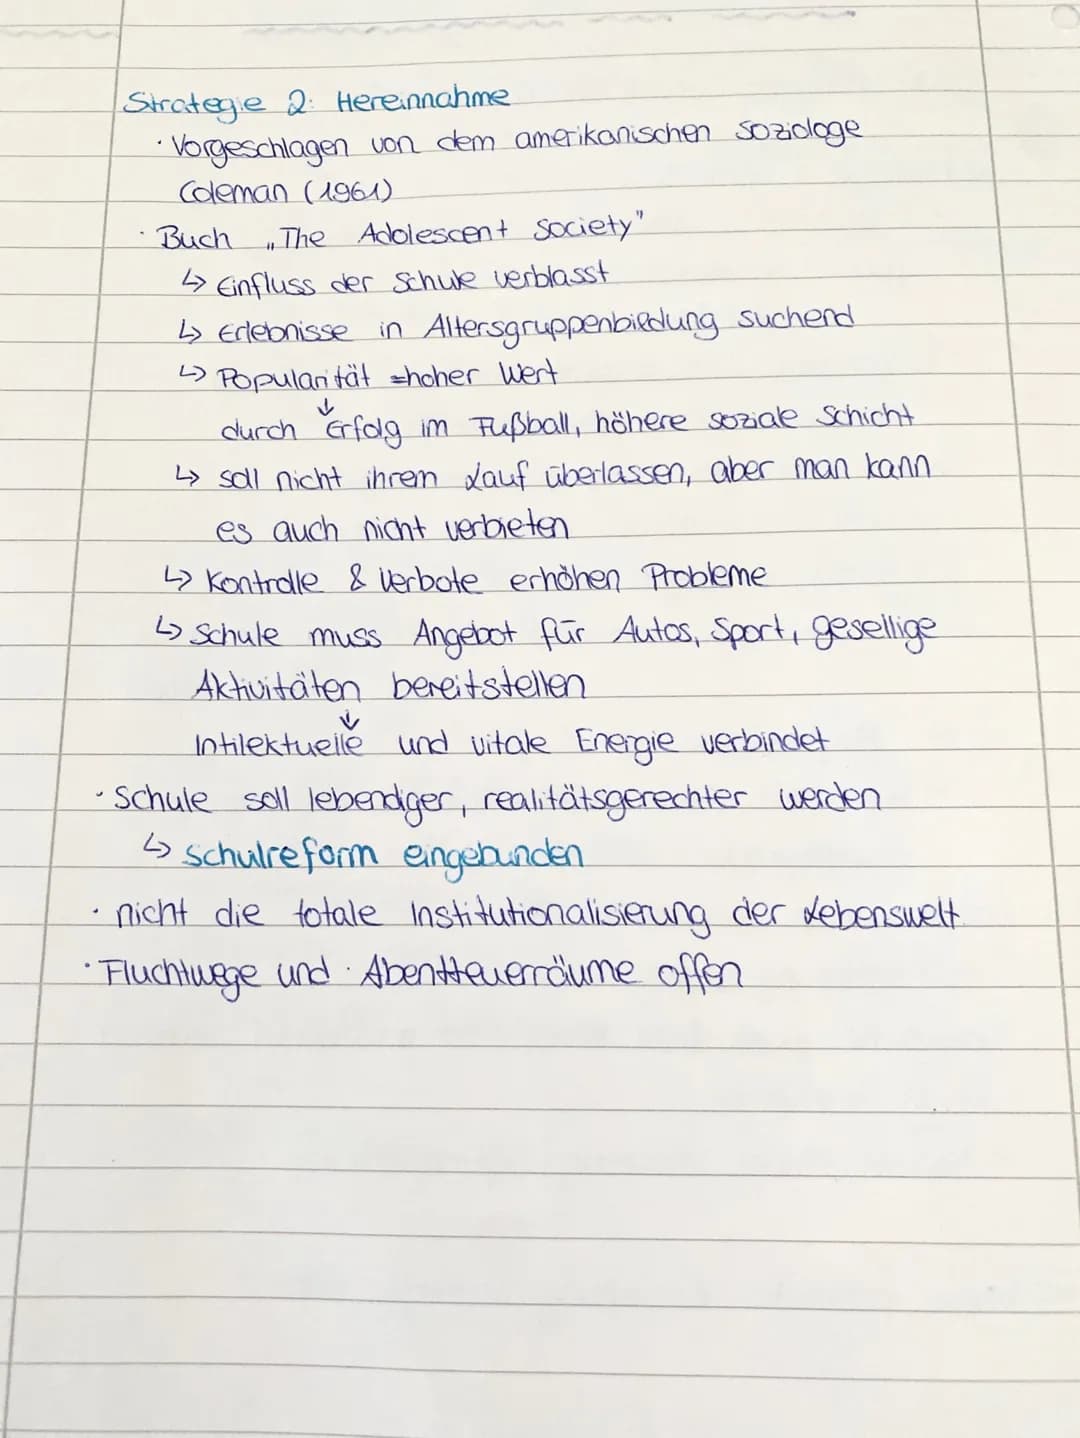 Strategie 2: Hereinnahme
· Vorgeschlagen von dem amerikanischen Soziologe
Coleman (1961)
· Buch „The Adolescent Society"
↳ Einfluss der Schule verblasst
↳ Erlebnisse in Altersgruppenbildung suchend
↳ Popularität =hoher Wert
↓
durch Erfolg im Fußball, höhere soziale Schicht
↳ soll nicht ihrem Lauf überlassen, aber man kann
es auch nicht verbieten
↳ Kontrolle & Verbote erhöhen Probleme
↳ Schule muss Angebot für Autos, Sport, gesellige
Aktivitäten bereitstellen
↓
Intilektuelle und vitale Energie verbindet
· Schule soll lebendiger, realitätsgerechter werden
↳ Schulreform eingebunden
· nicht die totale Institutionalisierung der Lebenswelt
· Fluchtwege und Abentteuerräume offen